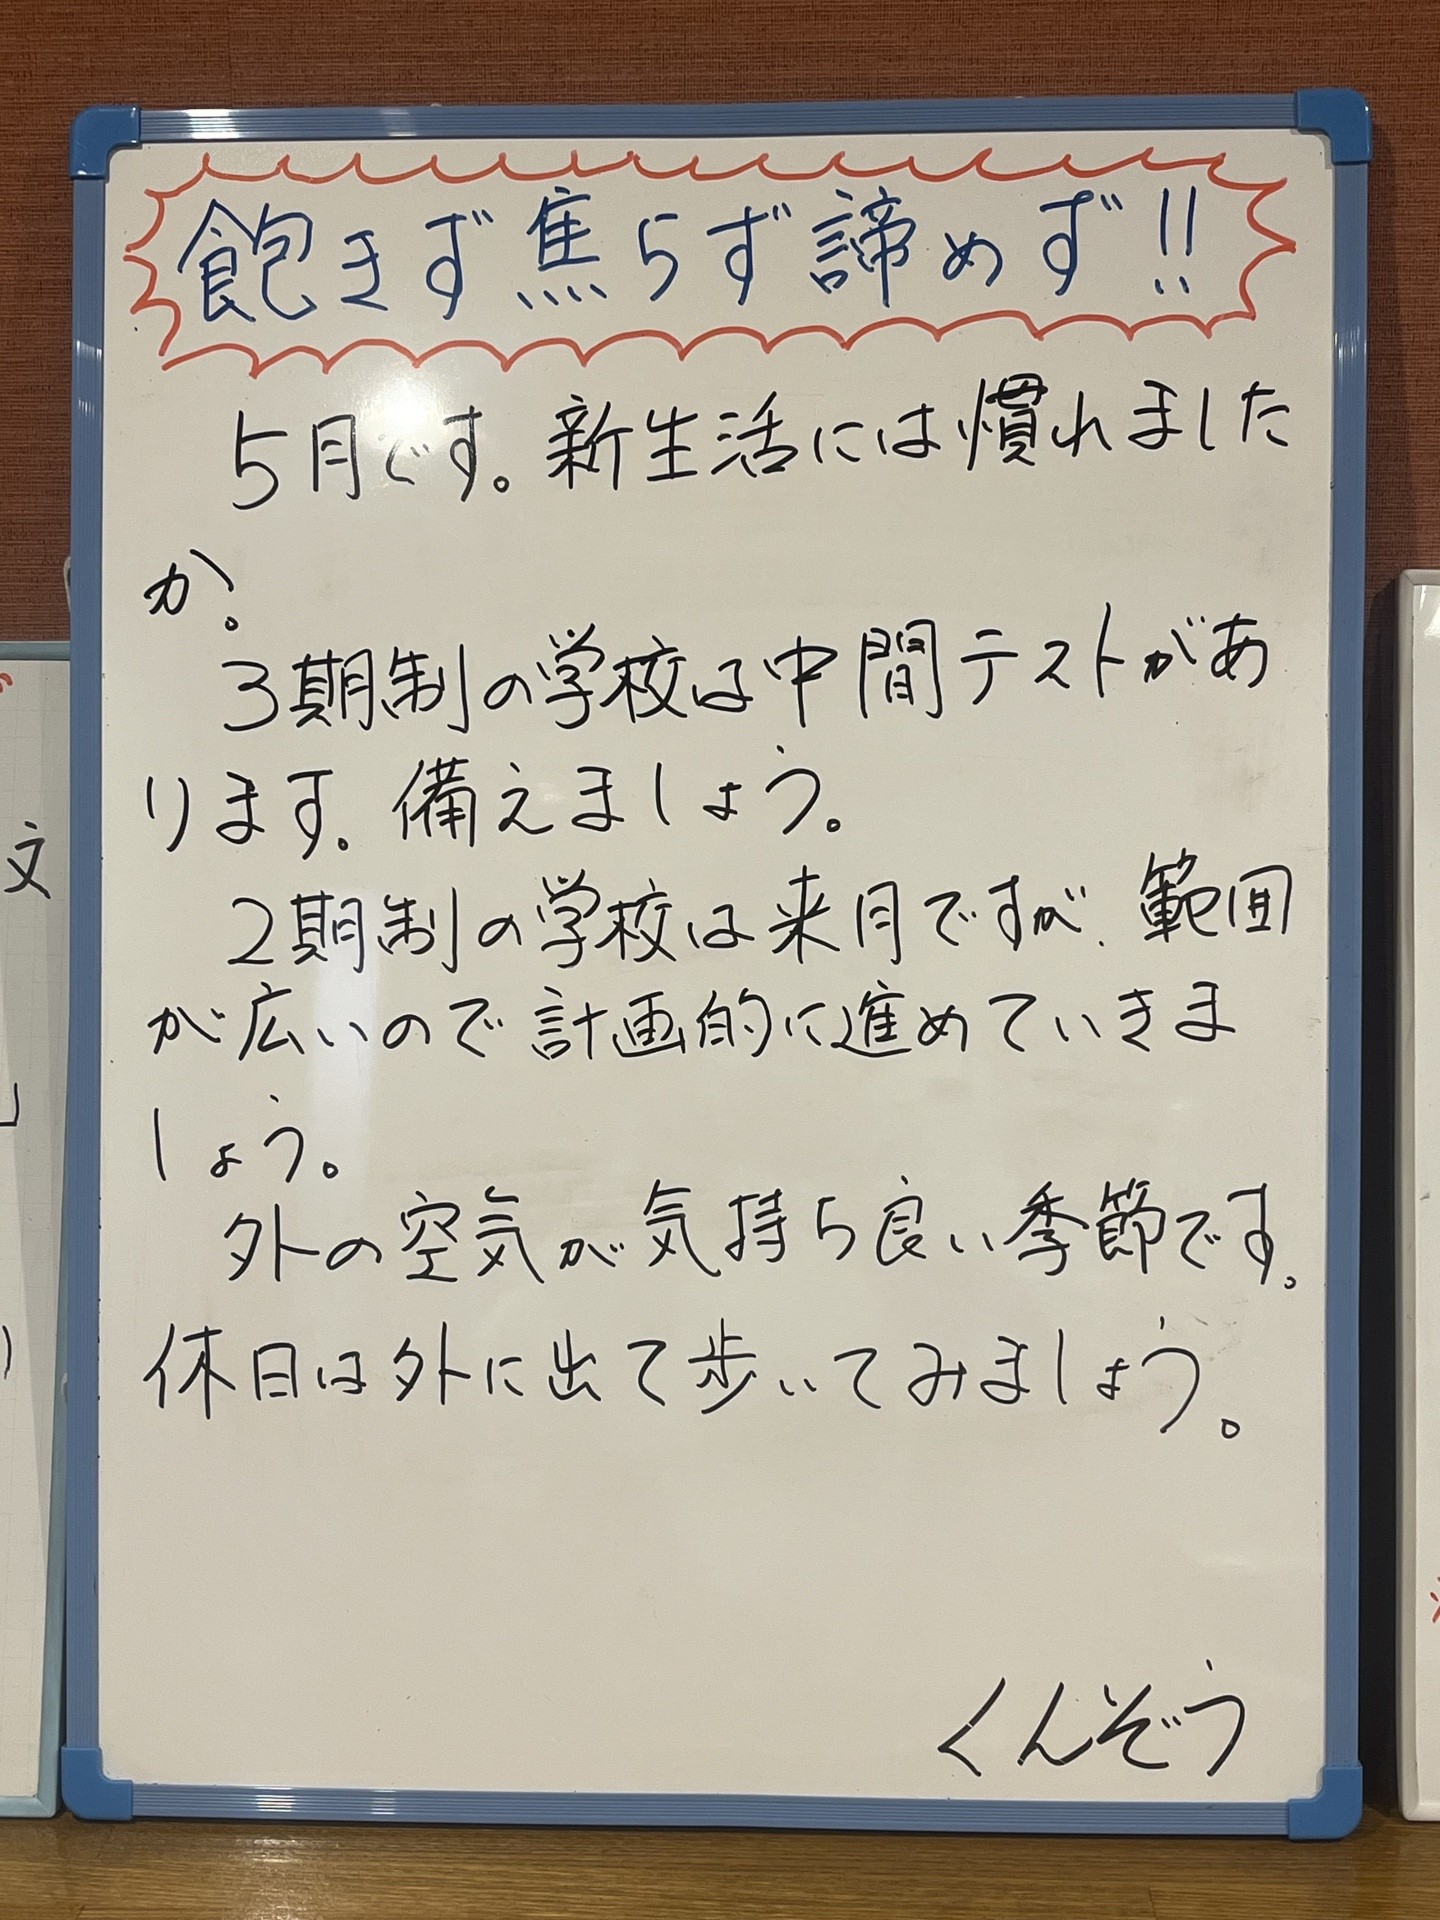 飽きず焦らず諦めず!!
5月です。新生活には慣れました
か。
3期制の学校は中間テストがあ
ります。備えましょう。
2期制の学校は来月ですが、範囲
が広いので計画的に進めていきま
しょう。
外の空気が気持ち良い季節です。
休日は外に出て歩いてみましょう。
くんぞう
文